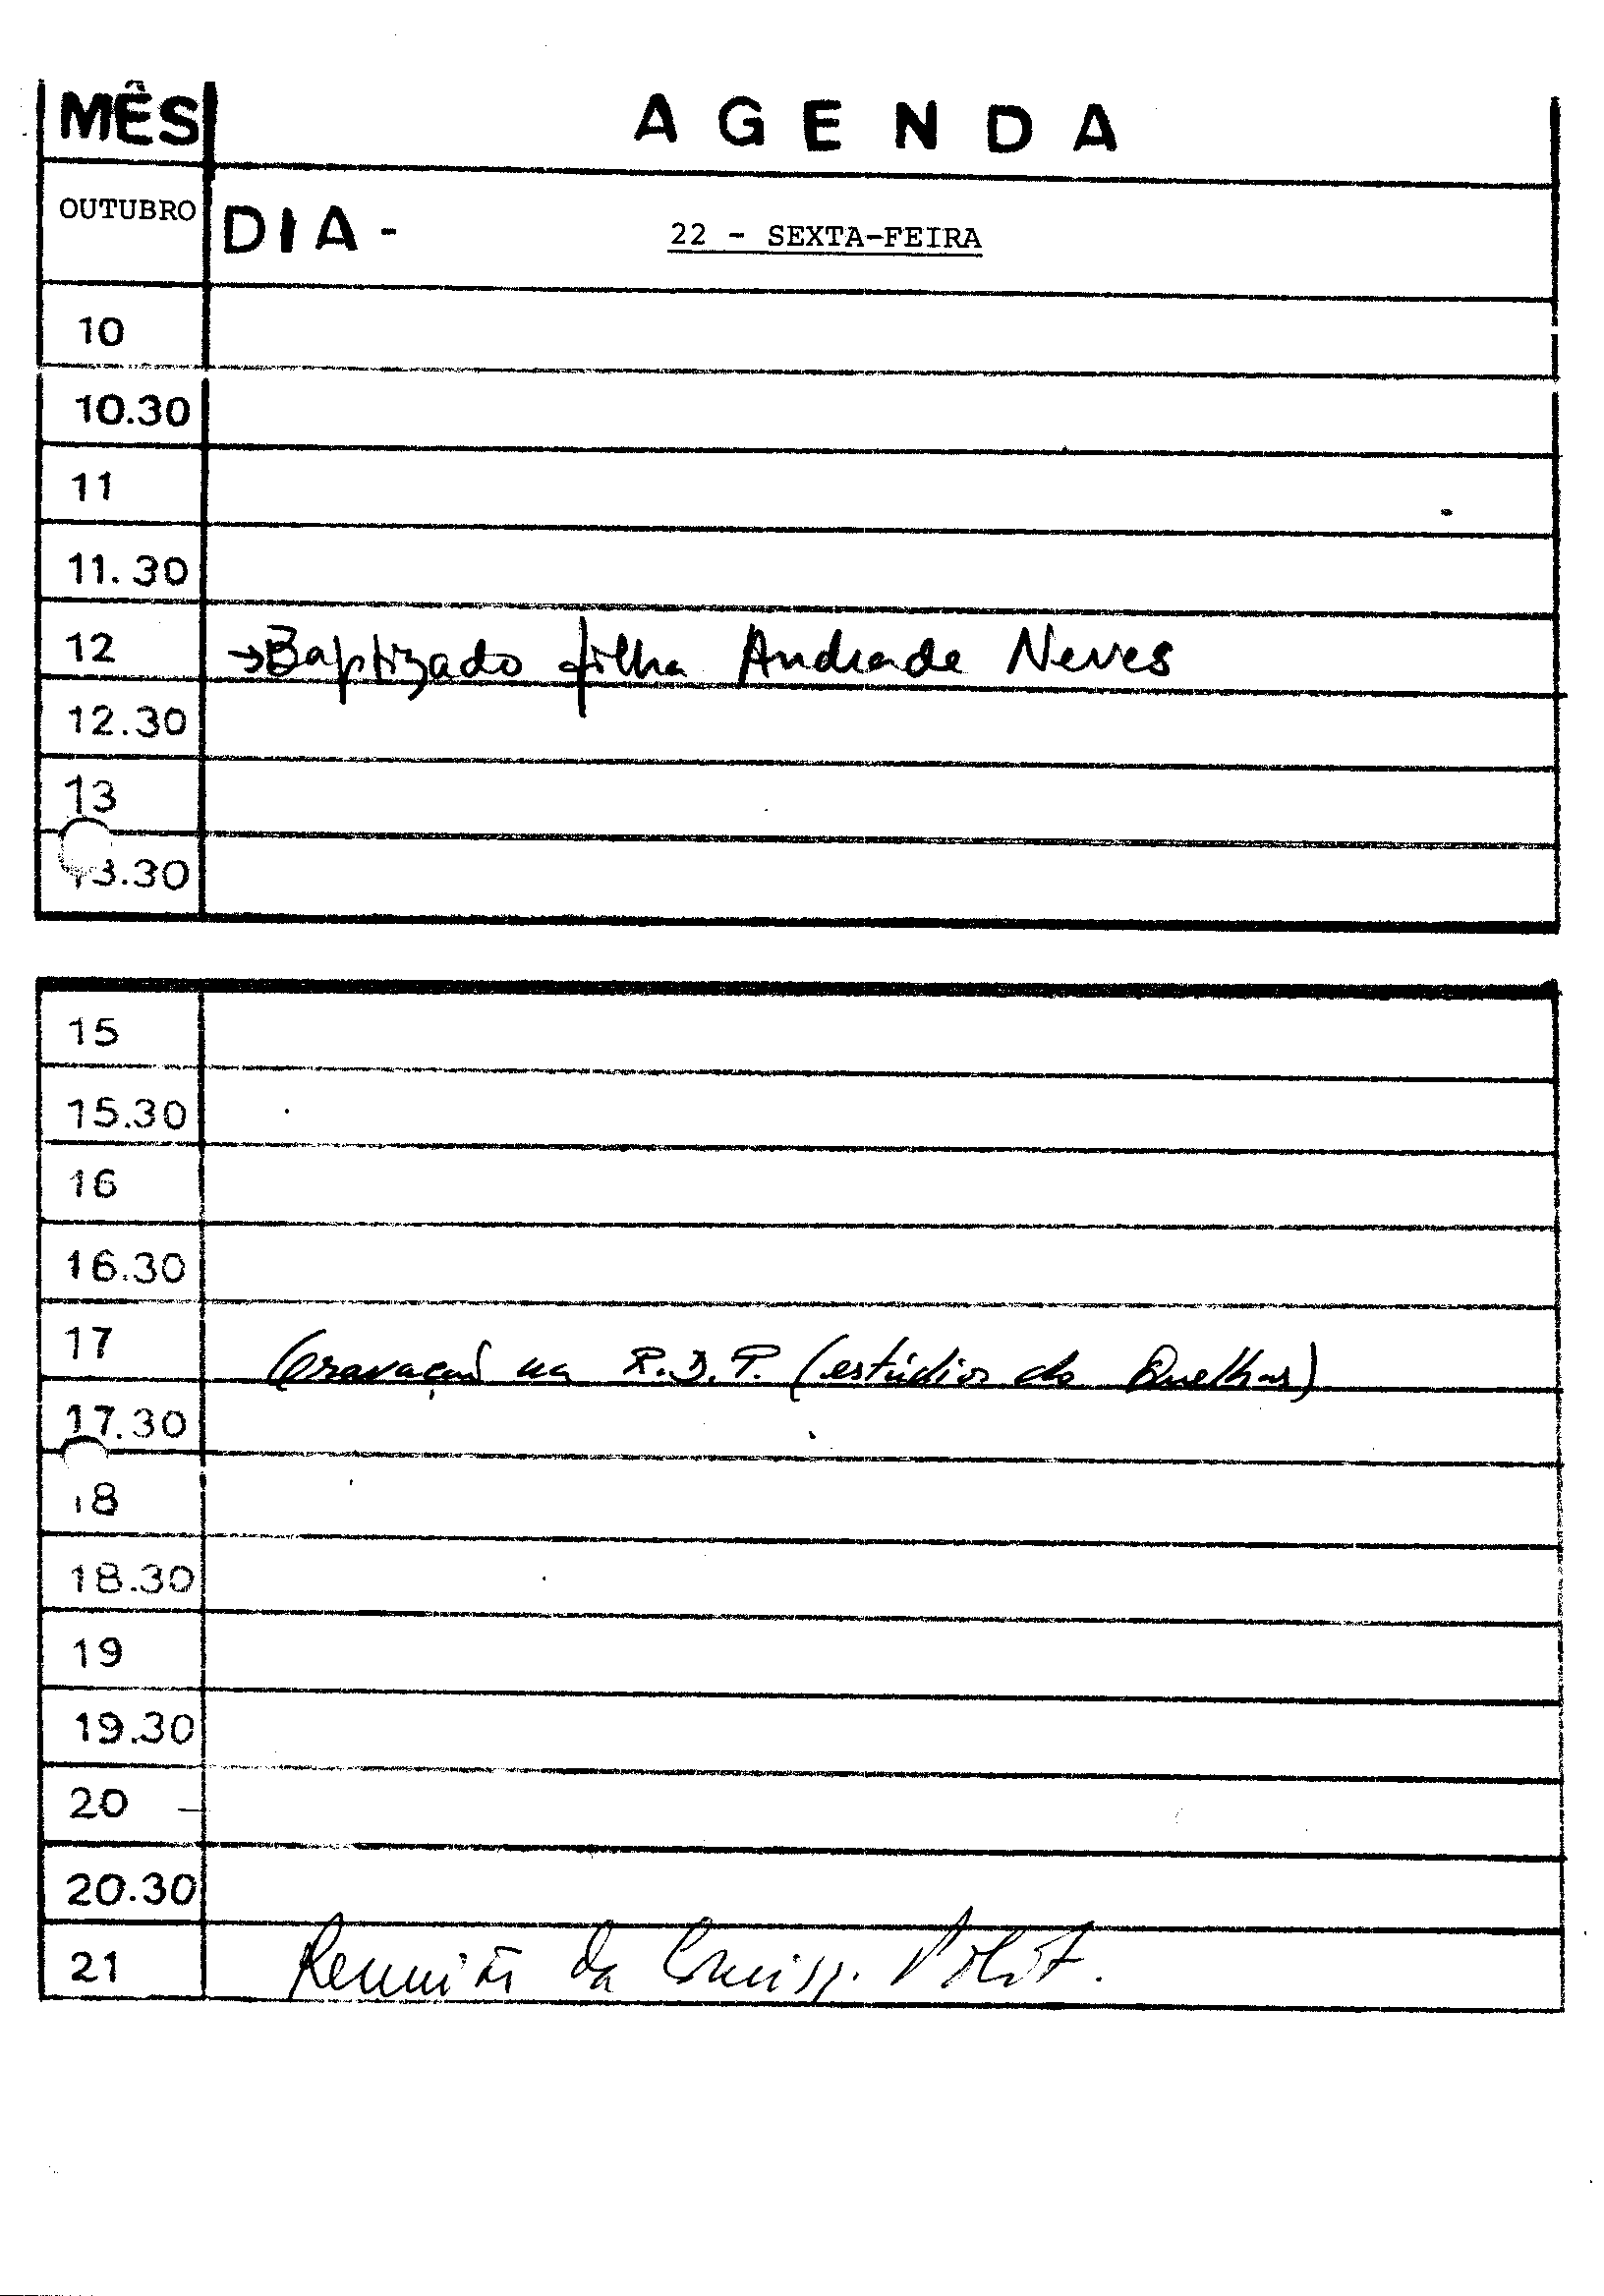 MÊS AGENDA
OUTUBRO DIA - 22 - SEXTA-FEIRA
10
10.30
11
11.30
12 →Baptizado filha Andrade Neves
12.30
13
13.30
15
15.30
16
16.30
17 Gravação na R.D.P. (estúdios do Quelhas)
17.30
18
18.30
19
19.30
20
20.30
21 Reunião da Comiss. Polít.